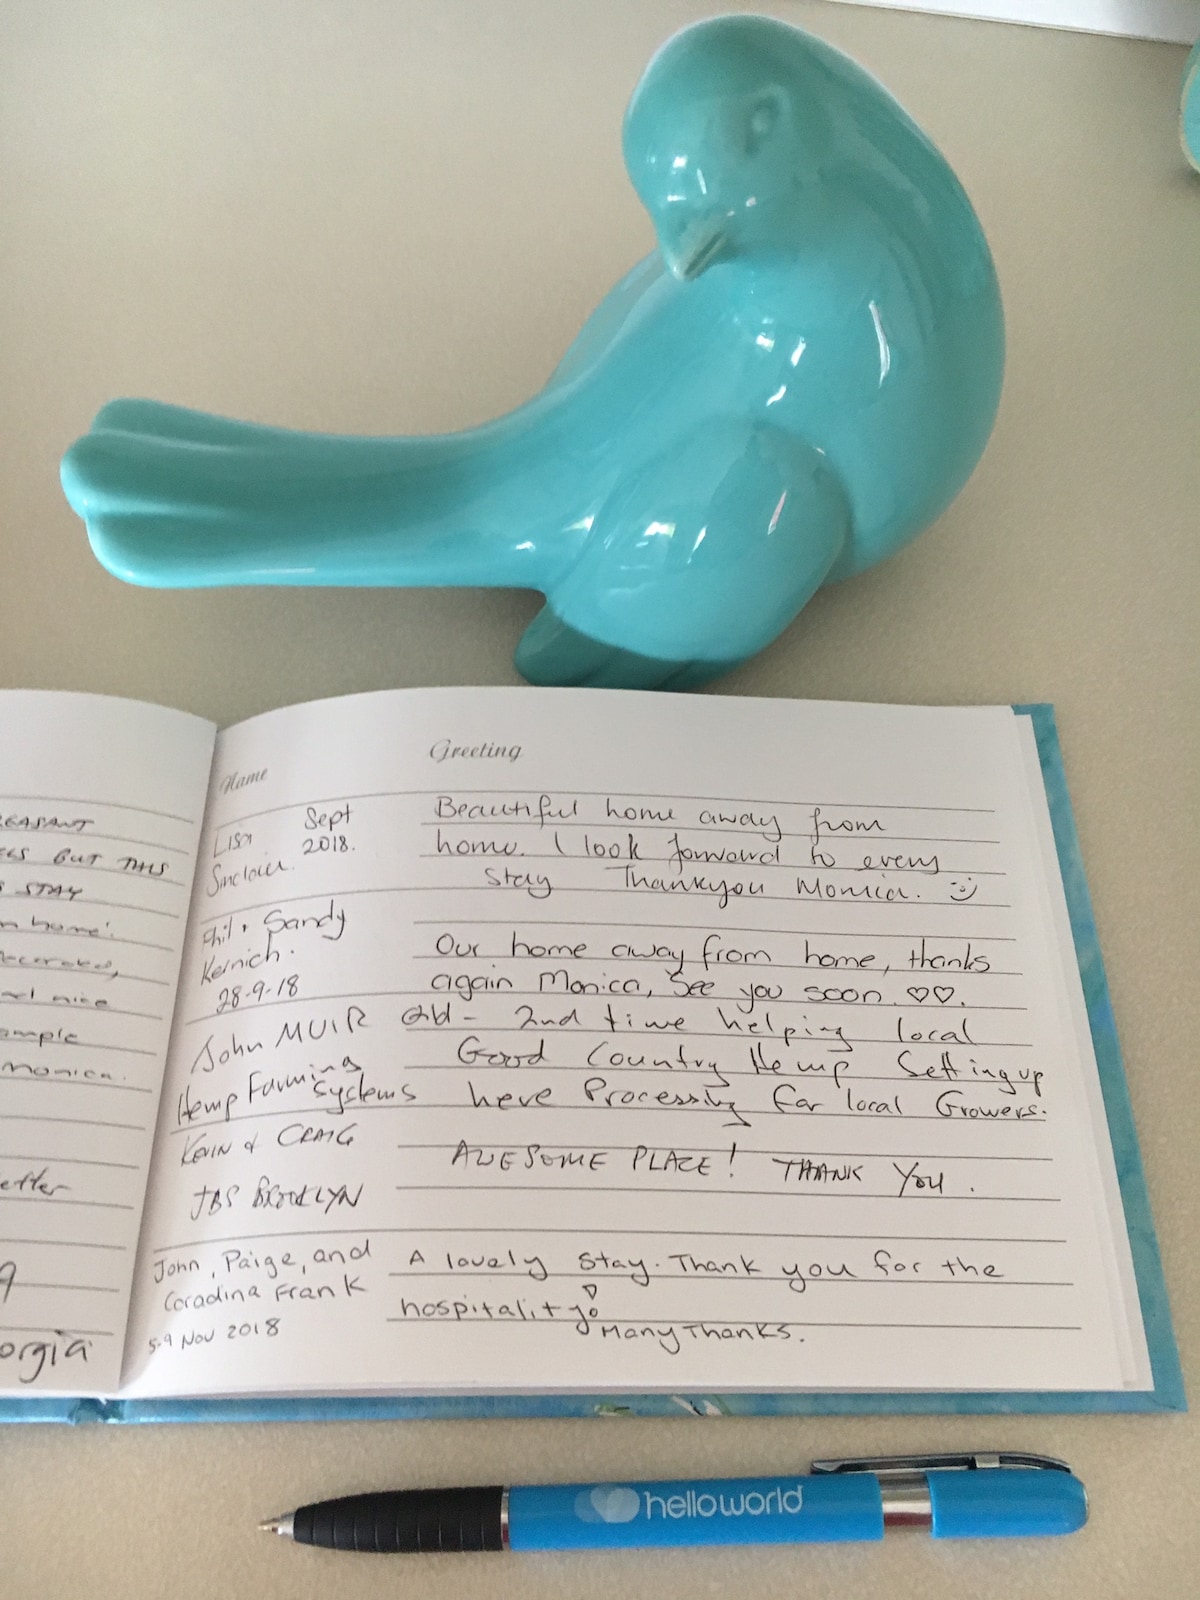 Name Greeting
Lisa Sept
Sinclair. 2018.
Beautiful home away from
home. I look forward to every
stay Thankyou Monica.
Phil + Sandy
Kernich.
28-9-18
Our home away from home, thanks
again Monica, See you soon ♡♡.
John MUIR Qld - 2nd time helping local
Hemp Farming Good Country Hemp Setting up
Systems here Processing for local Growers.
KEVIN & CRAIG
JBS BROOKLYN
AWESOME PLACE! THANK YOU.
John, Paige, and
Coradina Frank
5-9 Nov 2018
A lovely stay. Thank you for the
hospitality
Many Thanks.
BUT THIS
STAY
home'.
nice
Monica.
helloworld